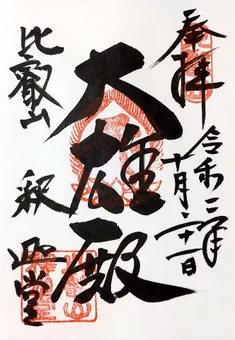 奉拝
令和二年
十月二十一日
大雄殿
比叡山
釈迦堂